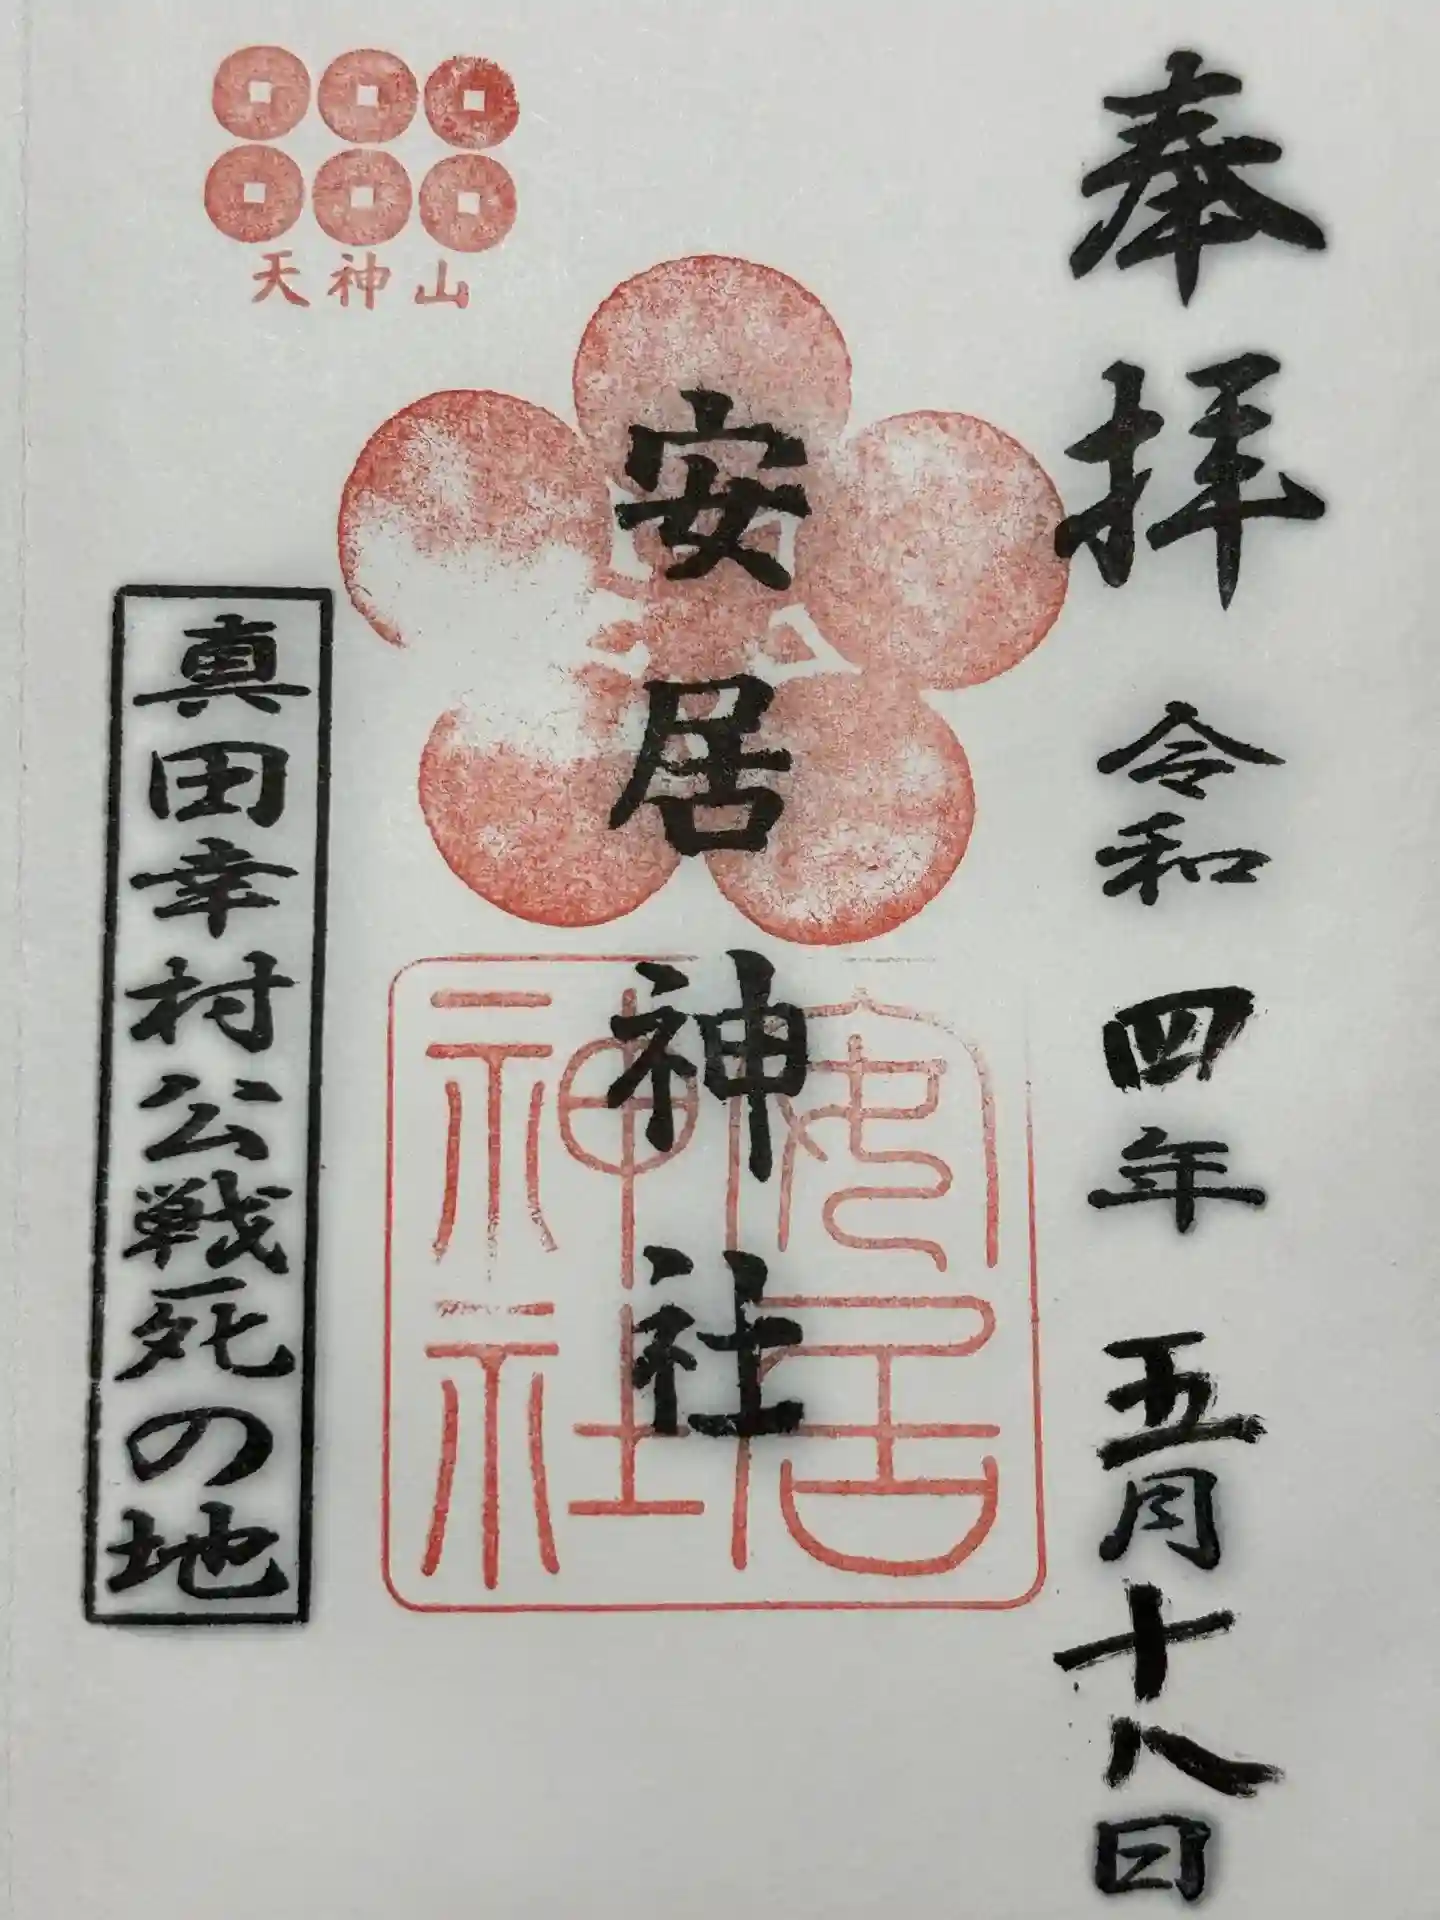 奉拝 令和四年 五月十八日
安居神社
安居
神社
天神山
真田幸村公戦死の地